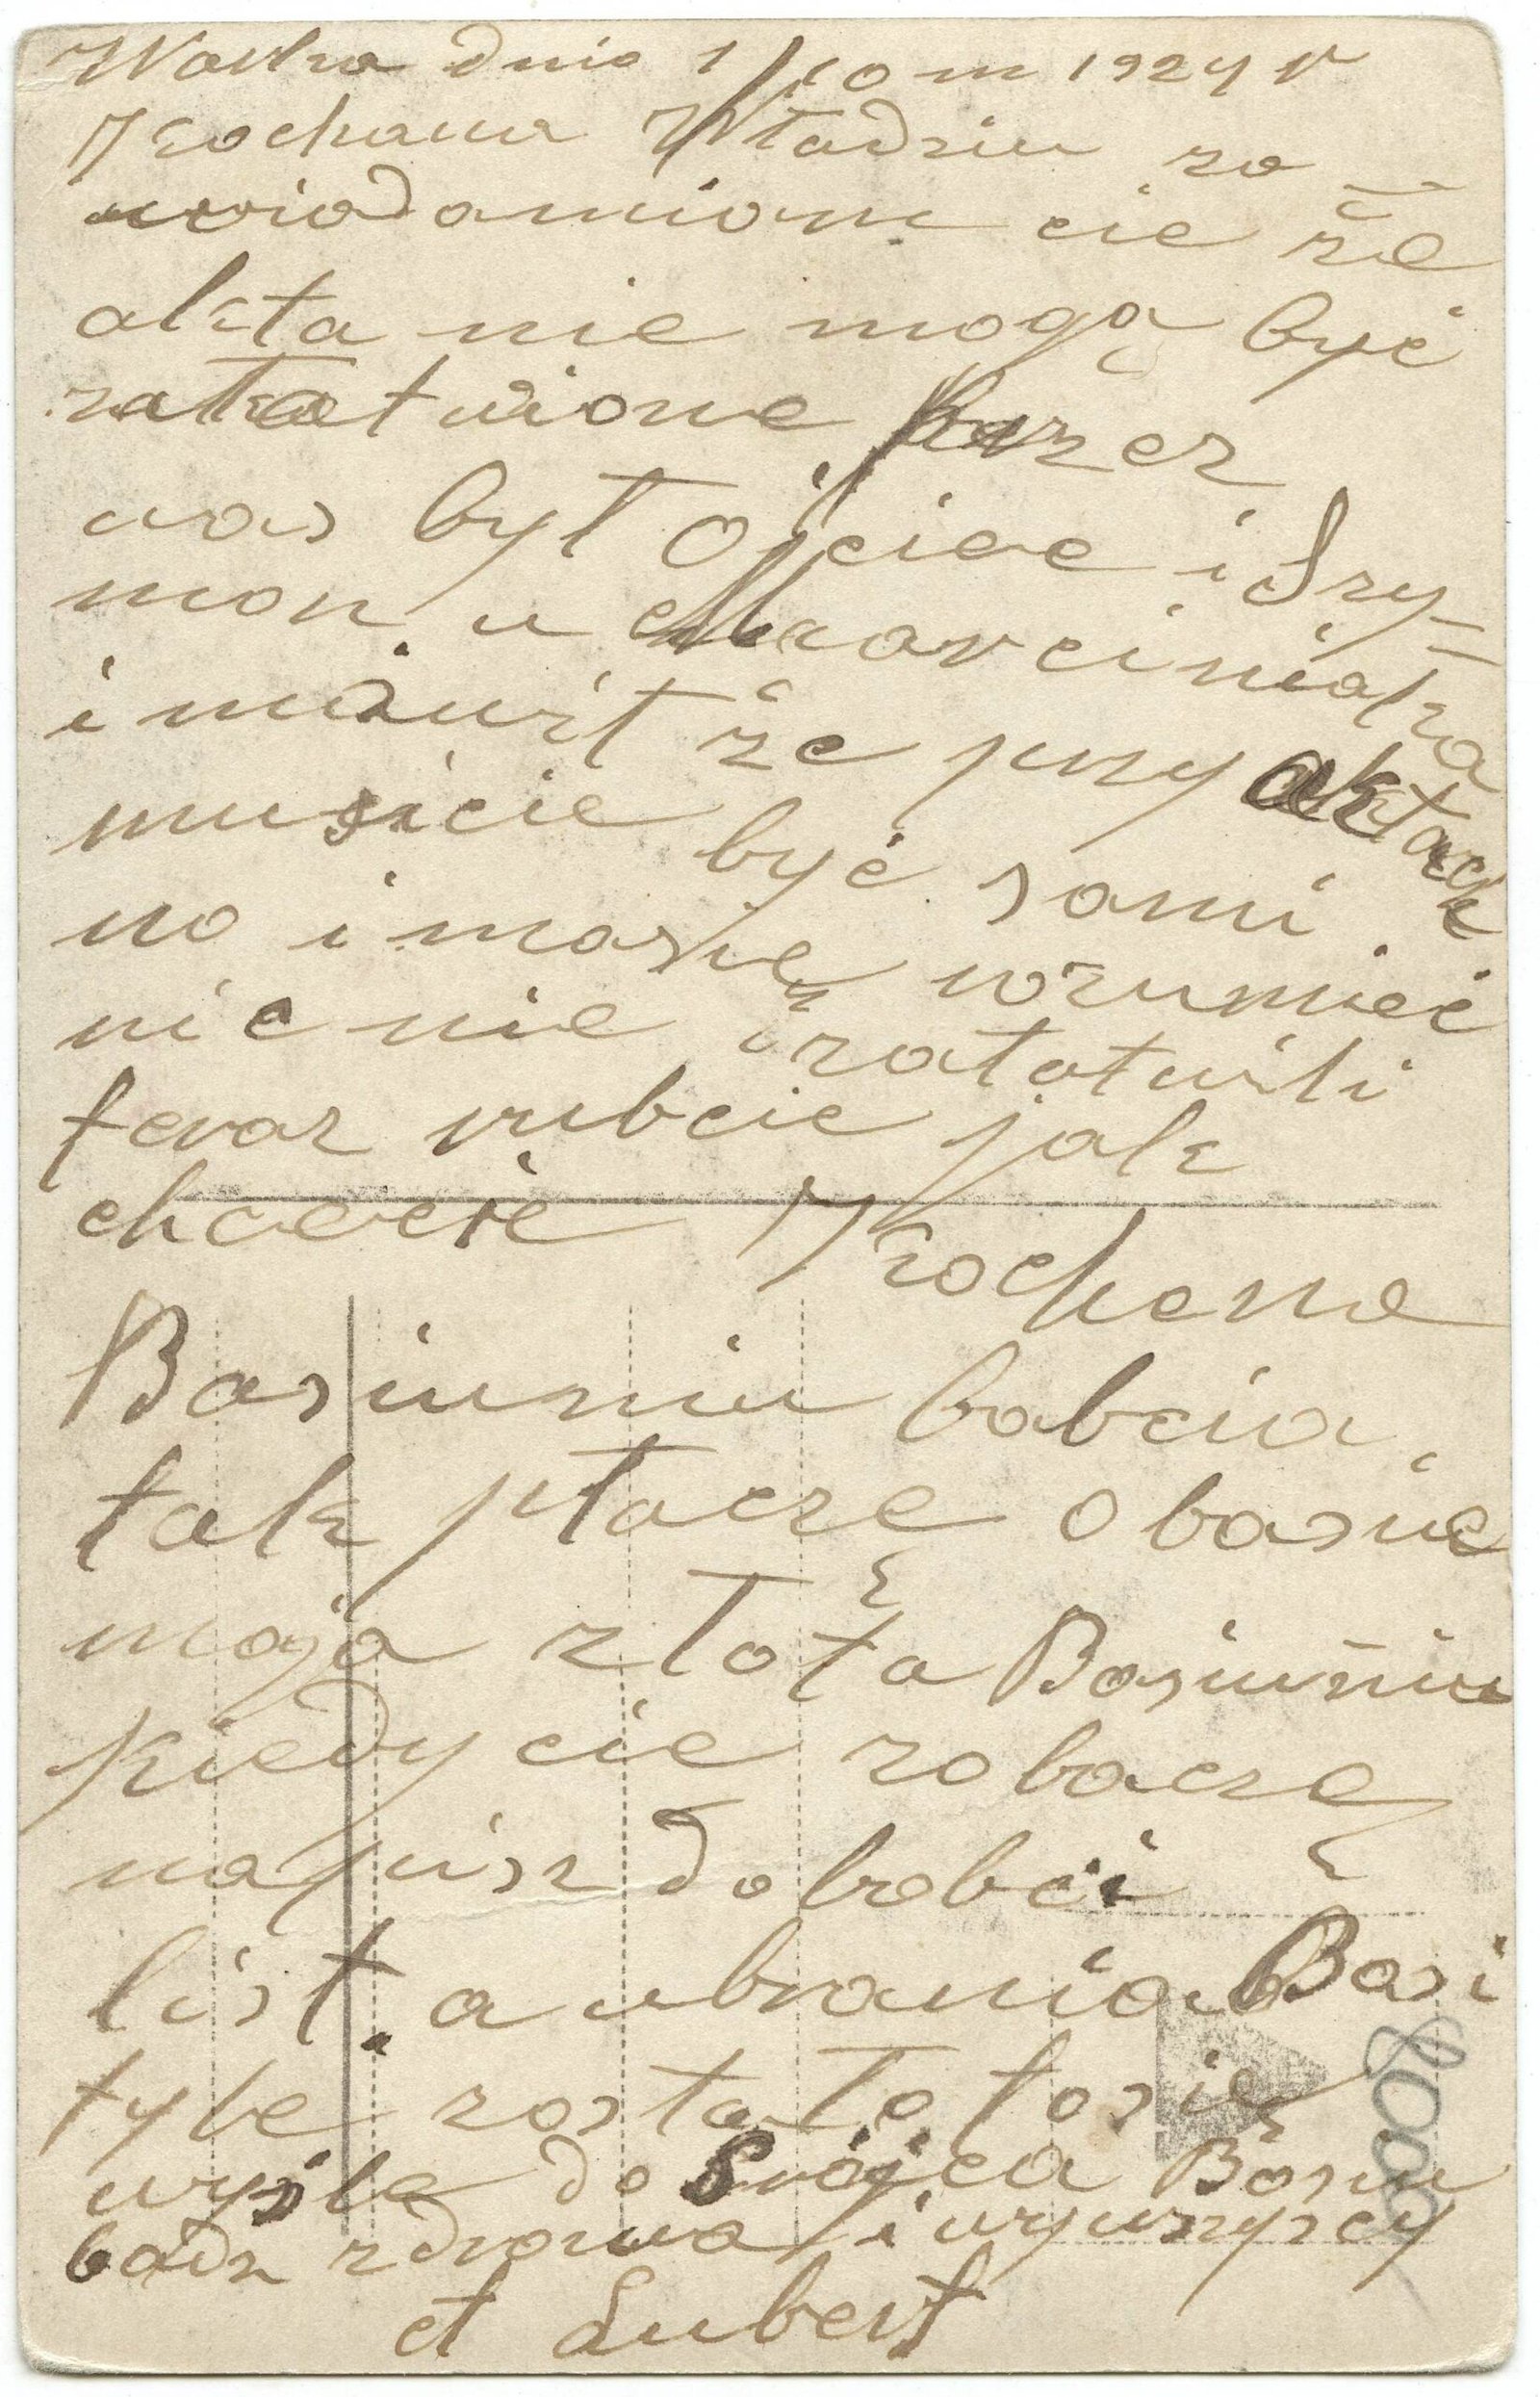 Warka dnia 1/10 m 1924 r
Kochana Władziu za
wiadamiam cie że
akta nie mogą być
załatwione przez
nas był Ojciec i Szy=
mon. u Marciniaka
i mówił że przy aktach
musicie być sami.
no i masie rozumieć
nic nie załatwili
teraz rubcie jak
chcecie Kochana
Basiuniu babcia
tak płacze o basie
moja złota Basiuniu
kiedy cię zobaczę
napisz do babci
list. a ubrania Basi
tyle zostało to się
wyśle do Basiu
bądz zdrowa i wy wszyscy
Lubert
8000